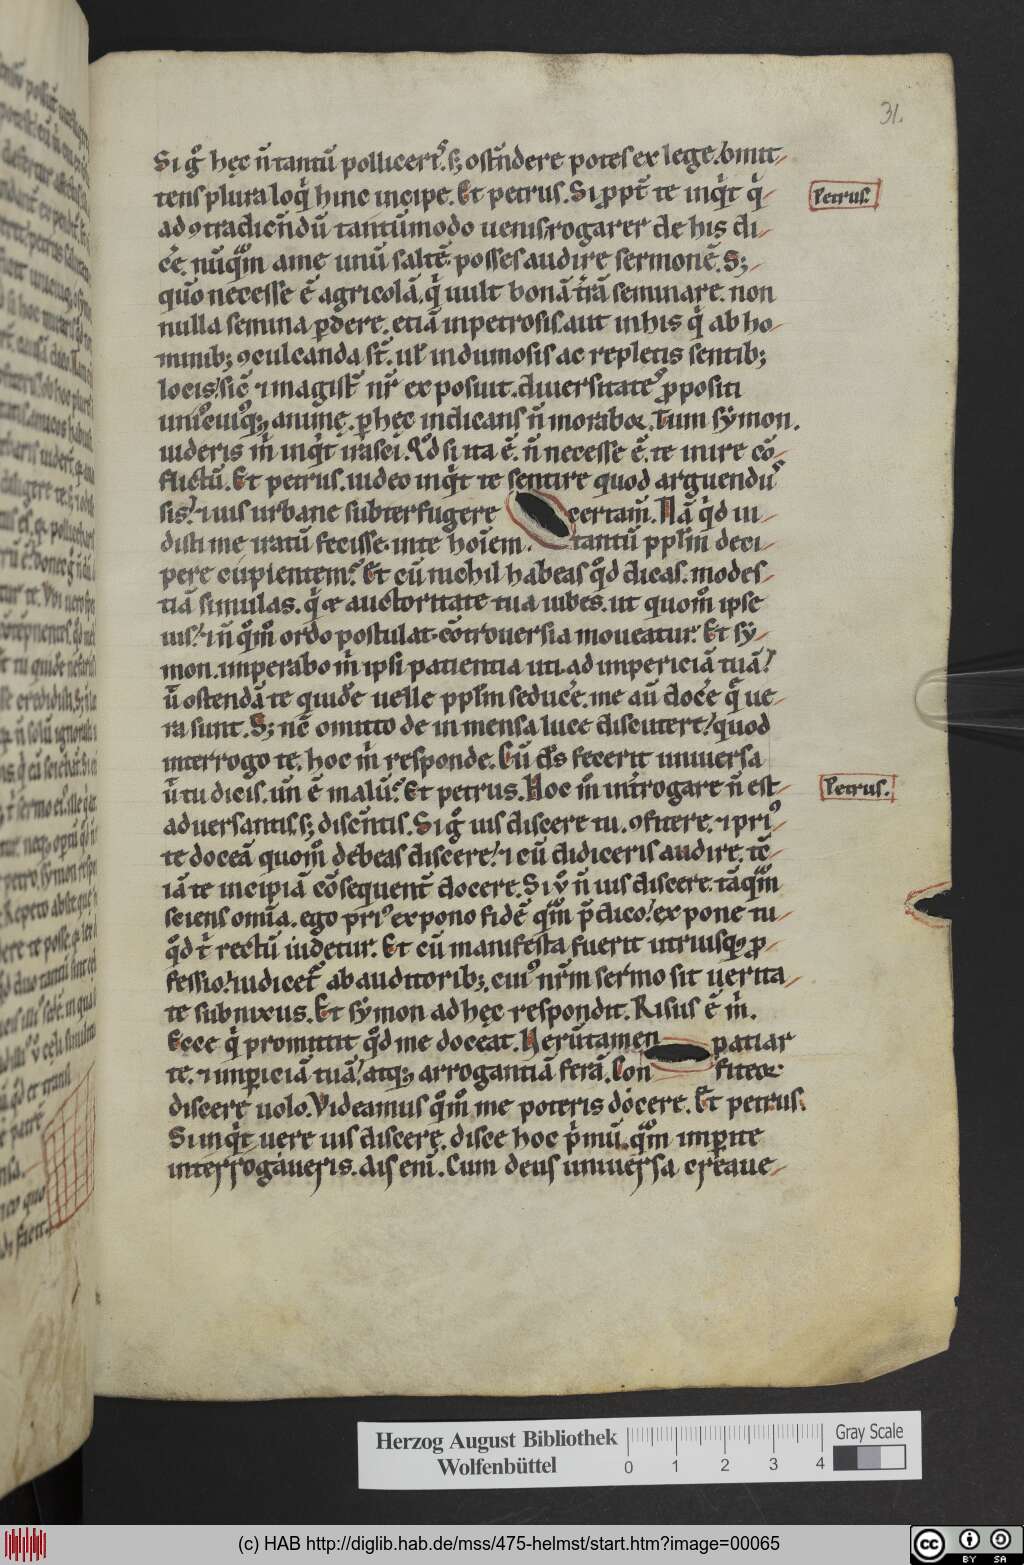 31.
Si g̊ hęc n̄ tantū pollicerıꝰ. sꝫ ostn̄dere potes ex lege. omit-
tens plura loq̇ hinc incipe. Et petrus. Si ꝓpt̄ te inq̇t q̇
Petrus.
ad ꝯtradicn̄dū tantūmodo uenis. rogarer de his di-
c̄e. nūq̊m a me unū saltē posses audire sermonē. Sꝫ
quō necesse ē agricolā, q̇ uult bonā t̄rā seminare. non
nulla semina ꝑdere. etiā in petrosis. aut in his q̇ ab ho-
minibꝫ ꝯculcanda st̄. ul̄ in dumosis ac repletis sentibꝫ
locis. sic̄ ⁊ magist̄ nr̄ exposuit. diuersitatē ꝓpositi
uniꝰcuiꝰqꝫ animę. ꝑ hęc indicans n̄ moraboꝛ. Tum sẏmon.
uideris m̄ inq̇t irasci. Qd̄ si ita ē. n̄ necesse ē. te inire cō-
flictū. Et petrus. uideo inq̇t te sentire quod arguendꝰ
sis. ⁊ uis urbane subterfugere certam̄. Nā q̇d ui-
disti me iratū fecisse. in te hoīem tantū ppl̄m deci-
pere cupientem. Et cū nichil habeas qd̄ dicas. modes-
tiā simulas. q̇ & auctoritate tua iubes. ut quom̊ ipse
uis. ⁊ n̄ q̊m̊ ordo postulat cōtrouersia moueatur. Et sẏ-
mon. imperabo m̄ ipsi patientia uti. ad imperıciā tuā.
ū ostendā te quidē uelle ppl̄m seduc̄e. me aū doc̄e q̄ ue-
ra sunt. Sꝫ nc̄ omitto de inmensa luce discutere. quod
interrogo te. hoc m̄ responde. Cū ds̄ fecerit uniuersa
ū tu dicis. un̄ ē malū. Et petrus. Hoc m̊ int̄rogare n̄ est
Petrus.
aduersantis. sꝫ discn̄tis. Si g̊ uis discere tu. ꝯfitere. ⁊ priꝰ
te doceā quom̊ debeas discere. ⁊ cū didiceris audire. tc̄
iā te incipiā cōsequent̄ docere. Si v̊ n̄ uis discere. tāq̊m
sciens om̄ia. ego priꝰ expono fidē q̊m p̄dico. expone tu-
qd̄ t̄ rectū uidetur. Et cū manifesta fuerit utriusqꝫ ꝓ-
fessio. iudicet̄ ab auditoribꝫ. cuiꝰ nr̄m sermo sit uerita-
te subnixus. Et sẏmon ad hęc respondit. Risus ē m̄.
Ecce q̇ promittit qd̄ me doceat. Uerūtamen patiar
te. ⁊ imperıciā tuā. atqꝫ arrogantiā ferā. Con fiteoꝛ
discere uolo. Videamus q̊m̊ me poteris docere. Et petrus.
Si inq̇t uere uis discere. disce hoc p̄mū q̊m imperite
interrogaueris. ais enī. Cum deus uniuersa creaue-
Herzog August Bibliothek
Wolfenbüttel
0 1 2 3 4
Gray Scale
(c) HAB http://diglib.hab.de/mss/475-helmst/start.htm?image=00065
cc BY SA